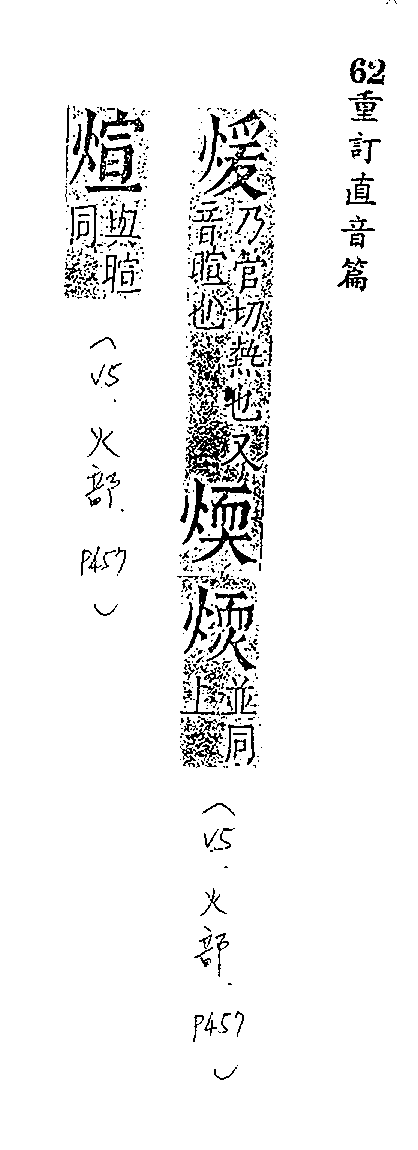 62重訂直音篇
煖乃管切熱也又音暄也煗𤍠並同上
(V5.火部.P457)
煊與暄同
(V5.火部.P457)